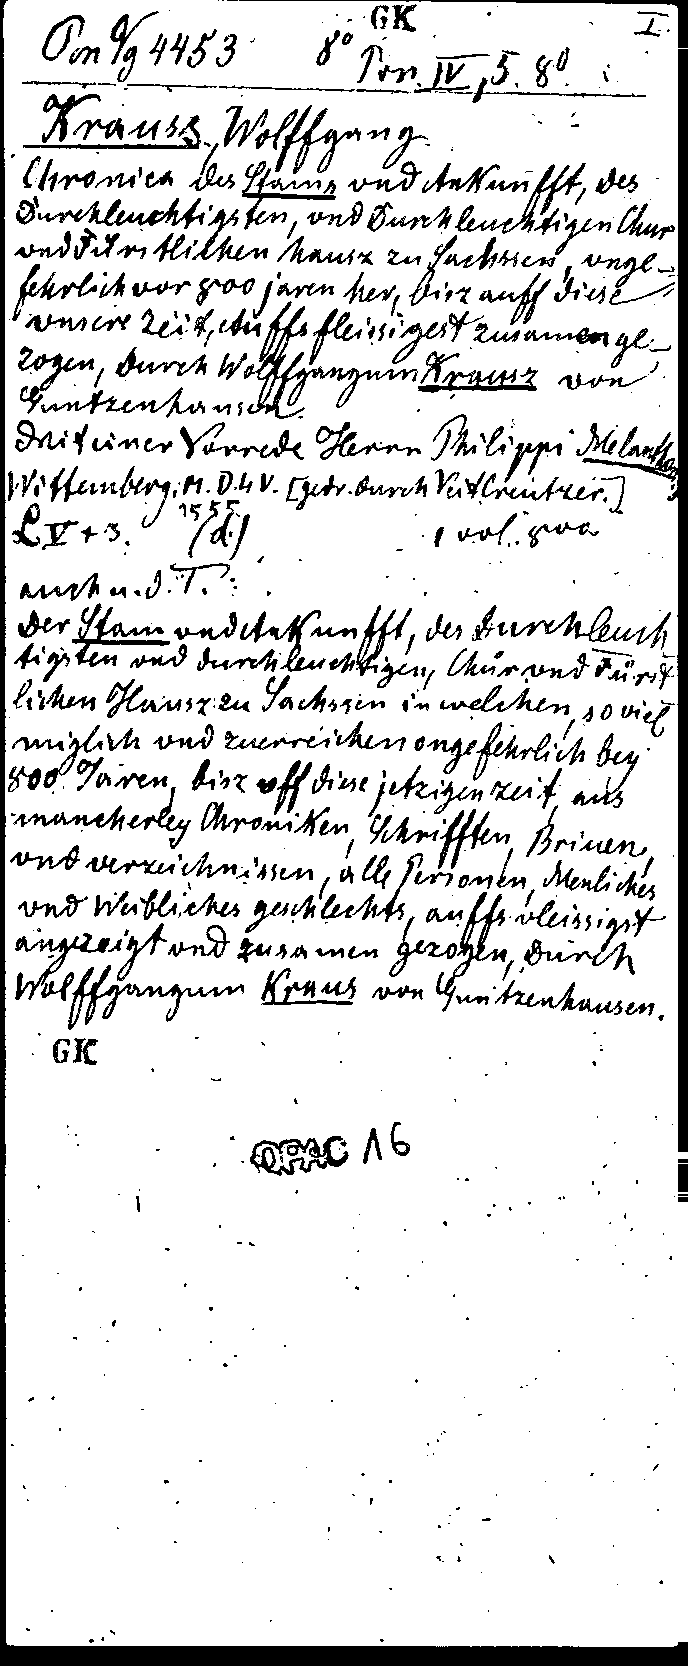 GK
I.
Pon Vg 4453 8°
Pon. IV, 5. 8°.
Krausz, Wolffgang
Chronica des Stams vnd Ankunfft, des
Durchleuchtigsten, vnd Durchleuchtigen Chur
vnd Fürstlichen hausz zu Sachssen, vnge-
fehrlich vor 800 jaren her, bisz auff diese
vnsere Zeit, Auffs fleissigest zusamen ge-
zogen, Durch Wolffgangum Krausz von
Guntzenhausen.
Mit einer Vorrede Herrn Philippi Melanth
Wittemberg. M. D. LV. [gedr. durch Veit Creutzer.]
1555
L V + 3. (d.) 1 vol. 800
auch u. d. T.:
Der Stam vnd Ankunfft, des Durchleuch
tigsten vnd durchleuchtigen, Chür vnd Fürst
lichen Hausz zu Sachssen in welchen, so viel
müglich vnd zuerreichen ongefehrlich bey
800 Jaren, bisz vff diese jetzigen zeit, aus
mancherley Chroniken, Schrifften, Briuen,
vnd verzeichnissen, alle Personen, Menliches
vnd Weibliches geschlechts, auffs vleissigst
angezeigt vnd zusamen gezogen, Durch
Wolffgangum Kraus von Guntzenhausen.
GK
OPAC 16